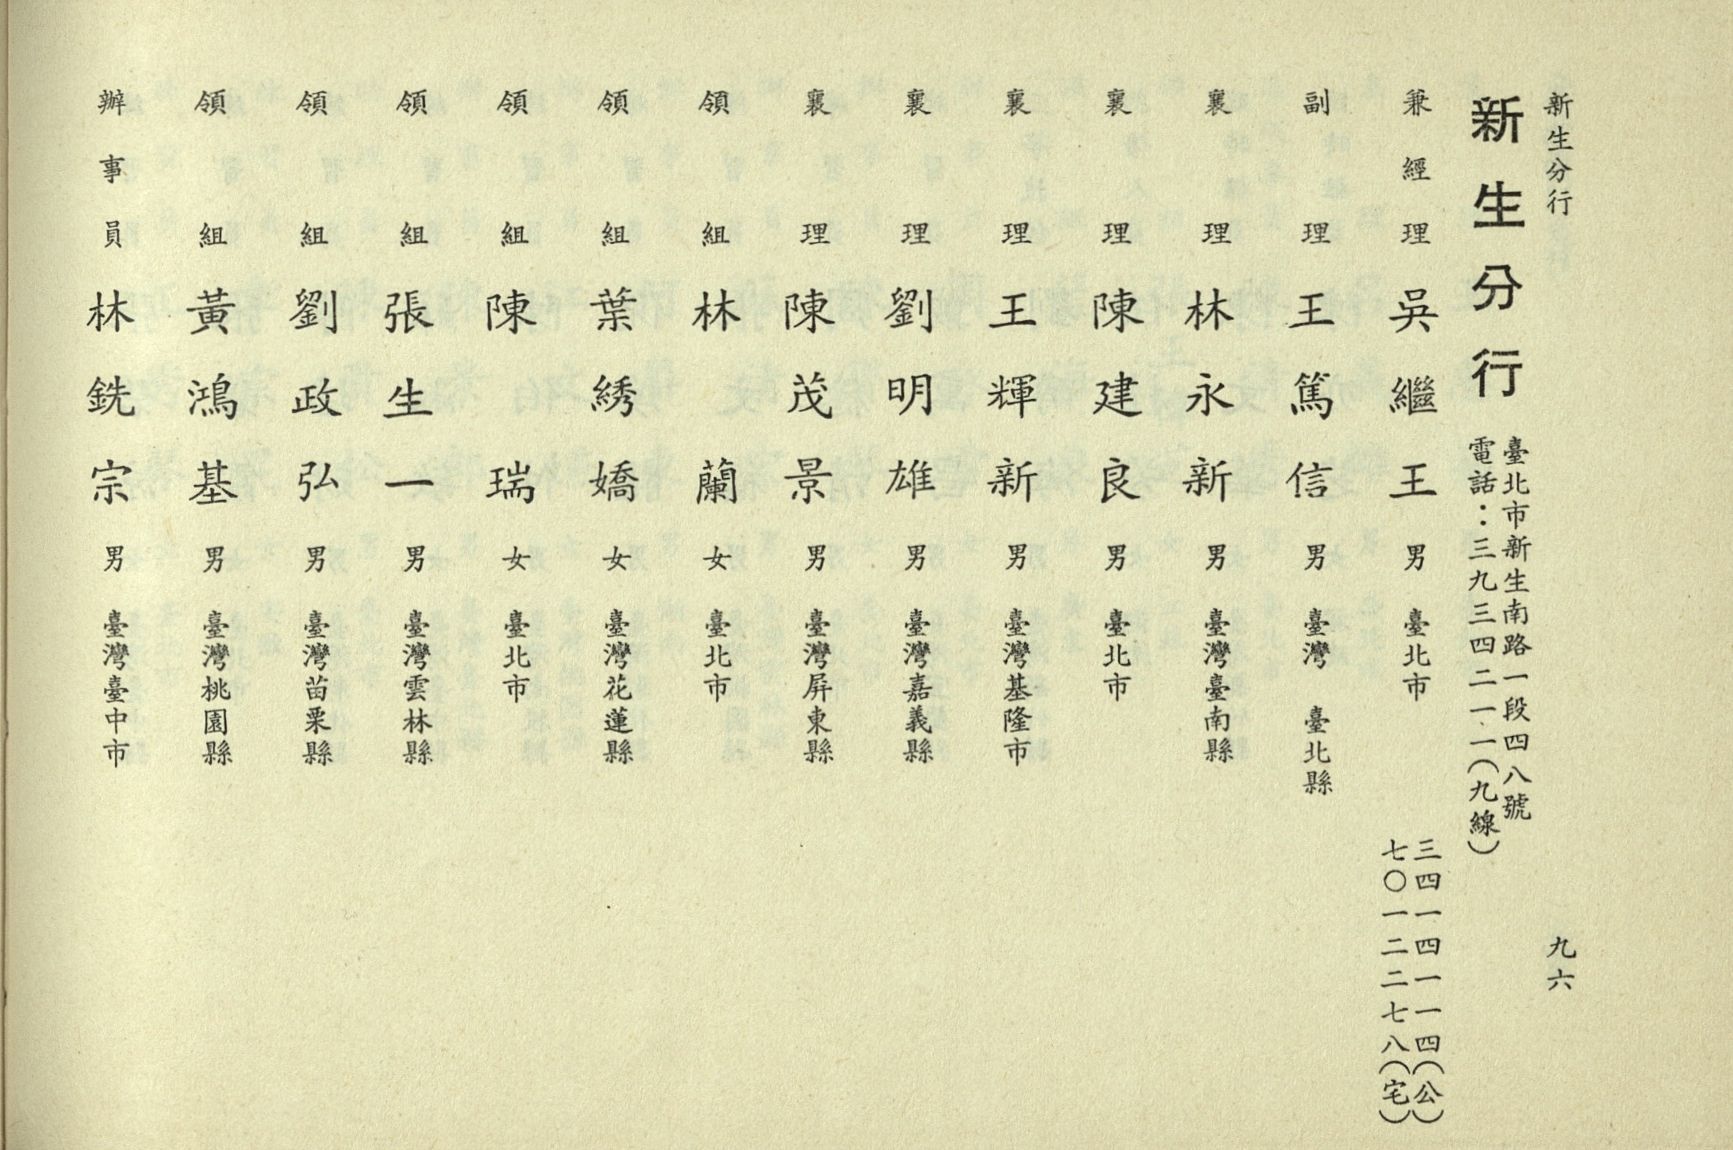 新生分行
九六
新生分行
臺北市新生南路一段四八號
電話：三九三四二一一(九線)
兼經理 吳繼王 男 臺北市
三四一四一一四(公)
七〇一二二七八(宅)
副理 王篤信 男 臺灣 臺北縣
襄理 林永新 男 臺灣臺南縣
襄理 陳建良 男 臺北市
襄理 王輝新 男 臺灣基隆市
襄理 劉明雄 男 臺灣嘉義縣
襄理 陳茂景 男 臺灣屏東縣
領組 林蘭 女 臺北市
領組 葉綉嬌 女 臺灣花蓮縣
領組 陳瑞 女 臺北市
領組 張生一 男 臺灣雲林縣
領組 劉政弘 男 臺灣苗栗縣
領組 黃鴻基 男 臺灣桃園縣
辦事員 林銑宗 男 臺灣臺中市